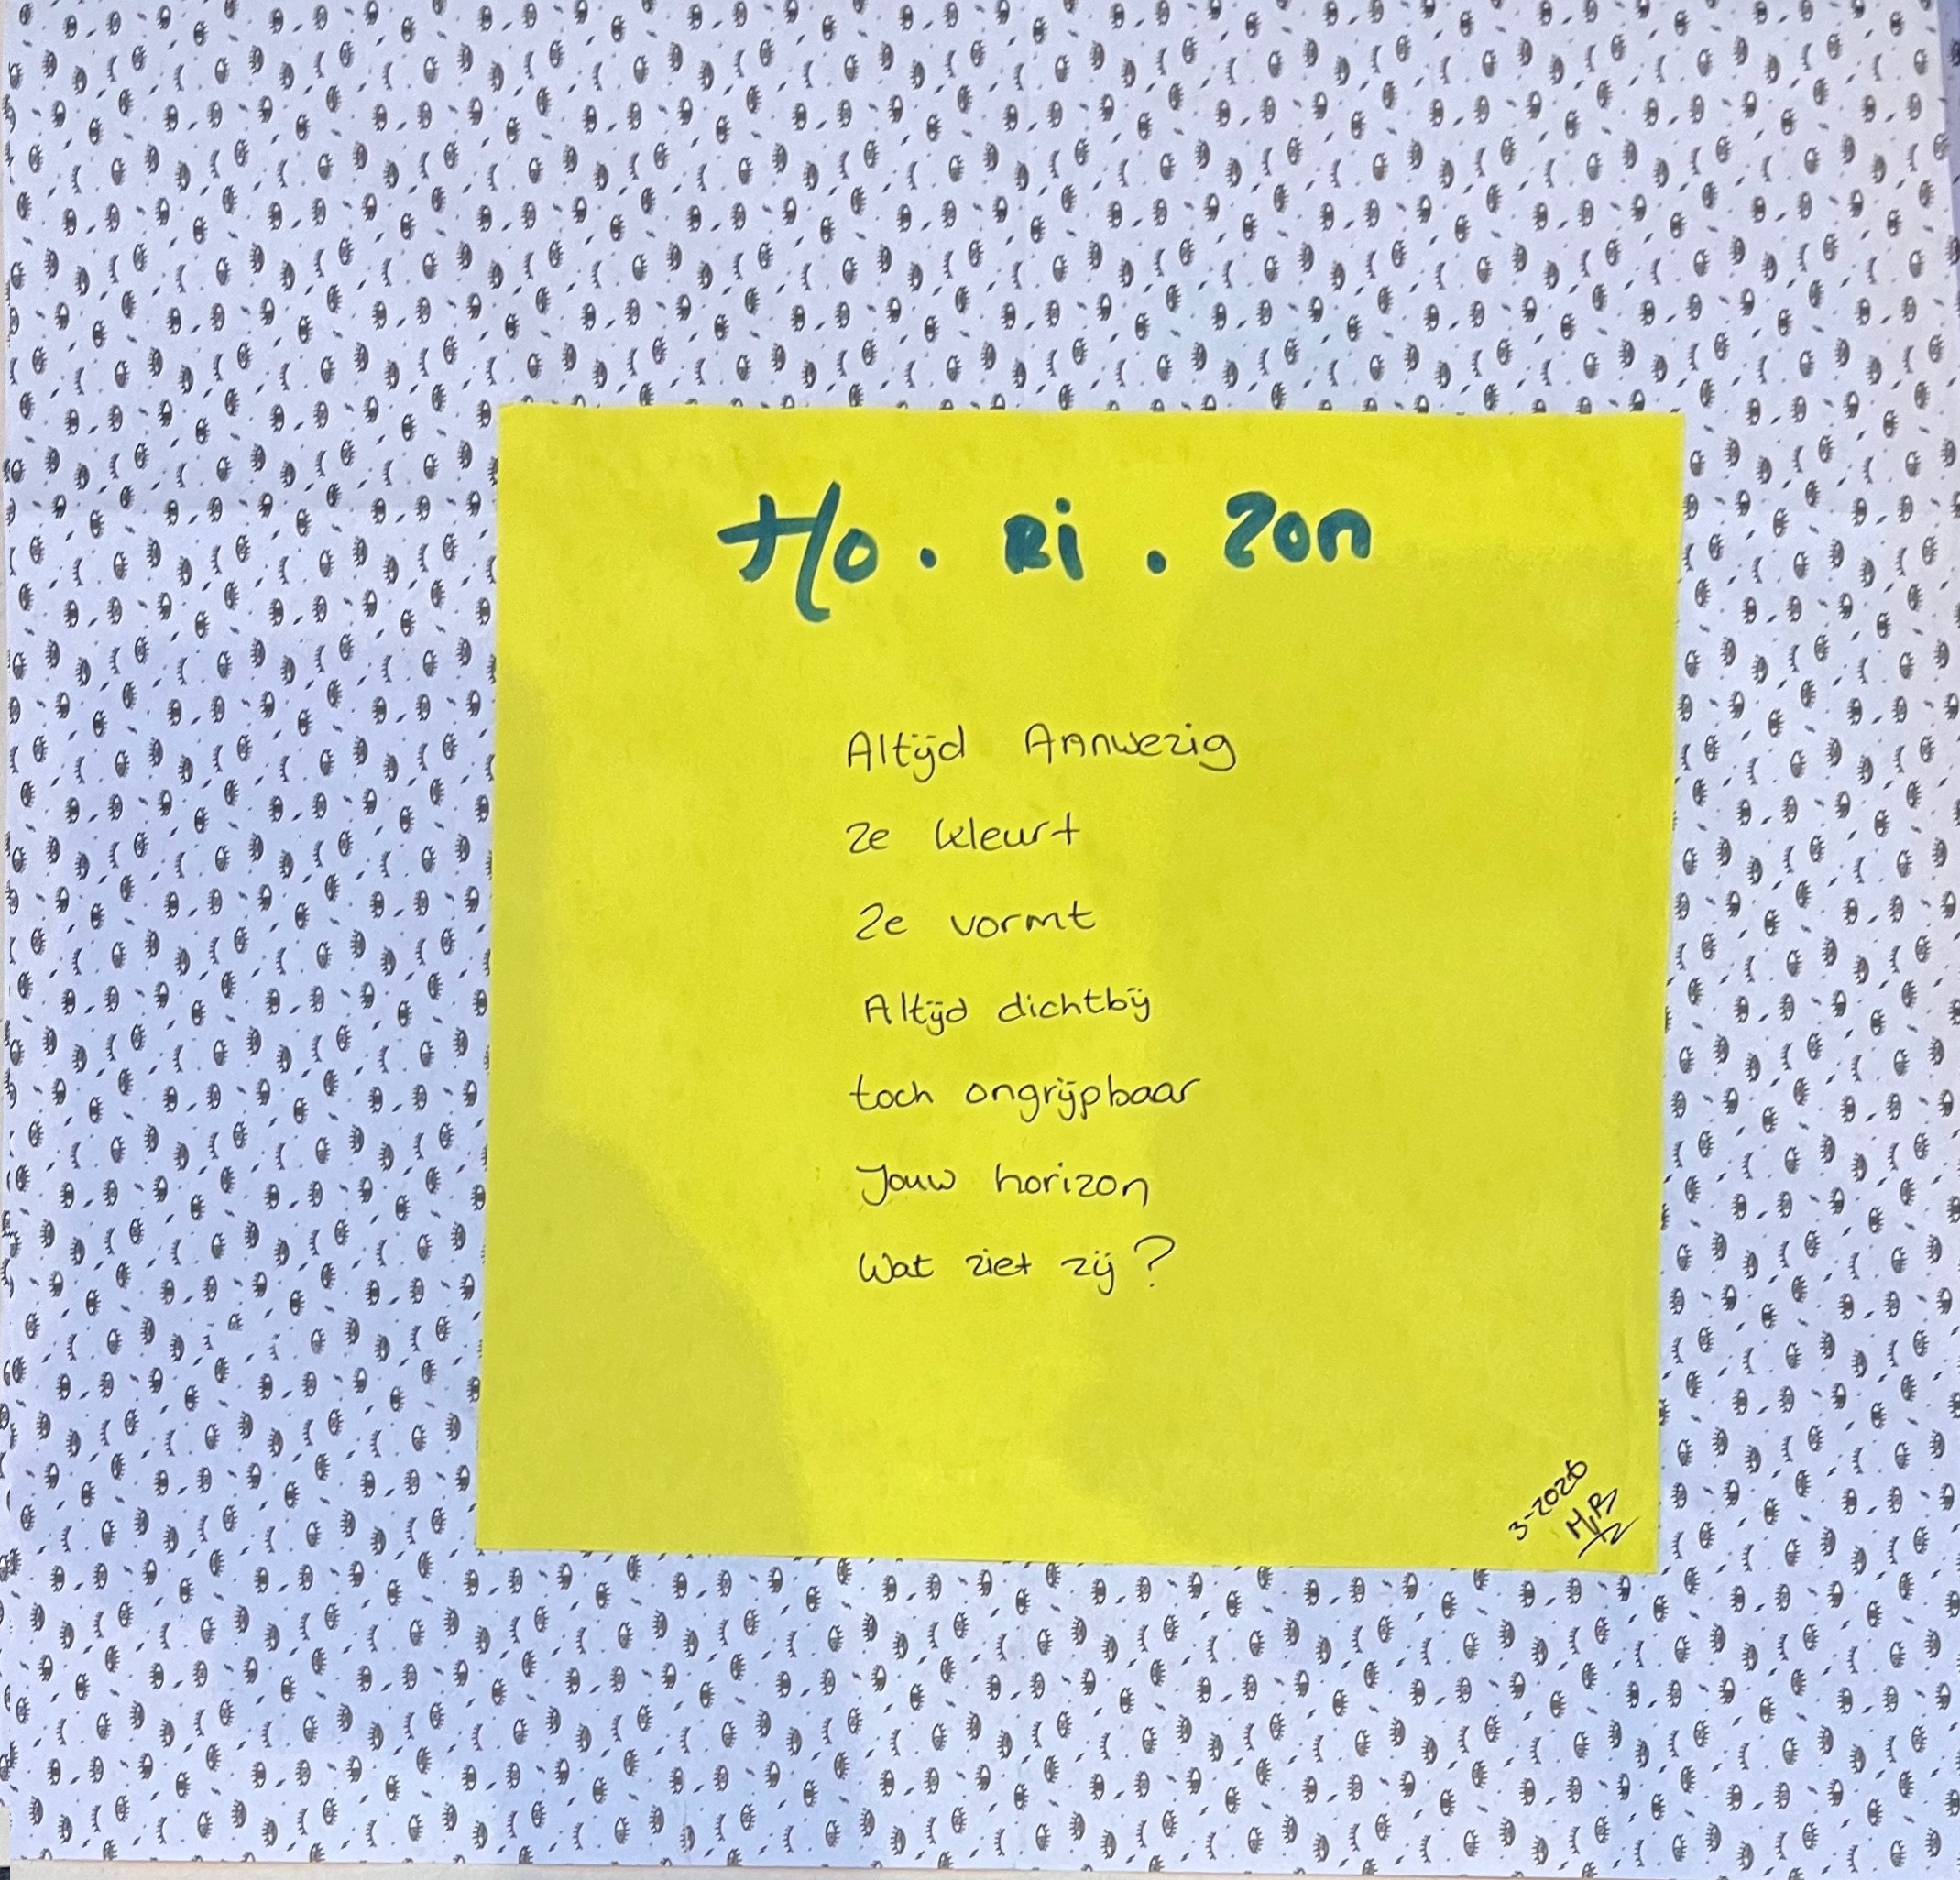 Ho. Ri. Zon
Altijd Aanwezig
Ze kleurt
Ze vormt
Altijd dichtbij
toch ongrijpbaar
Jouw horizon
Wat ziet zij?
3-2026